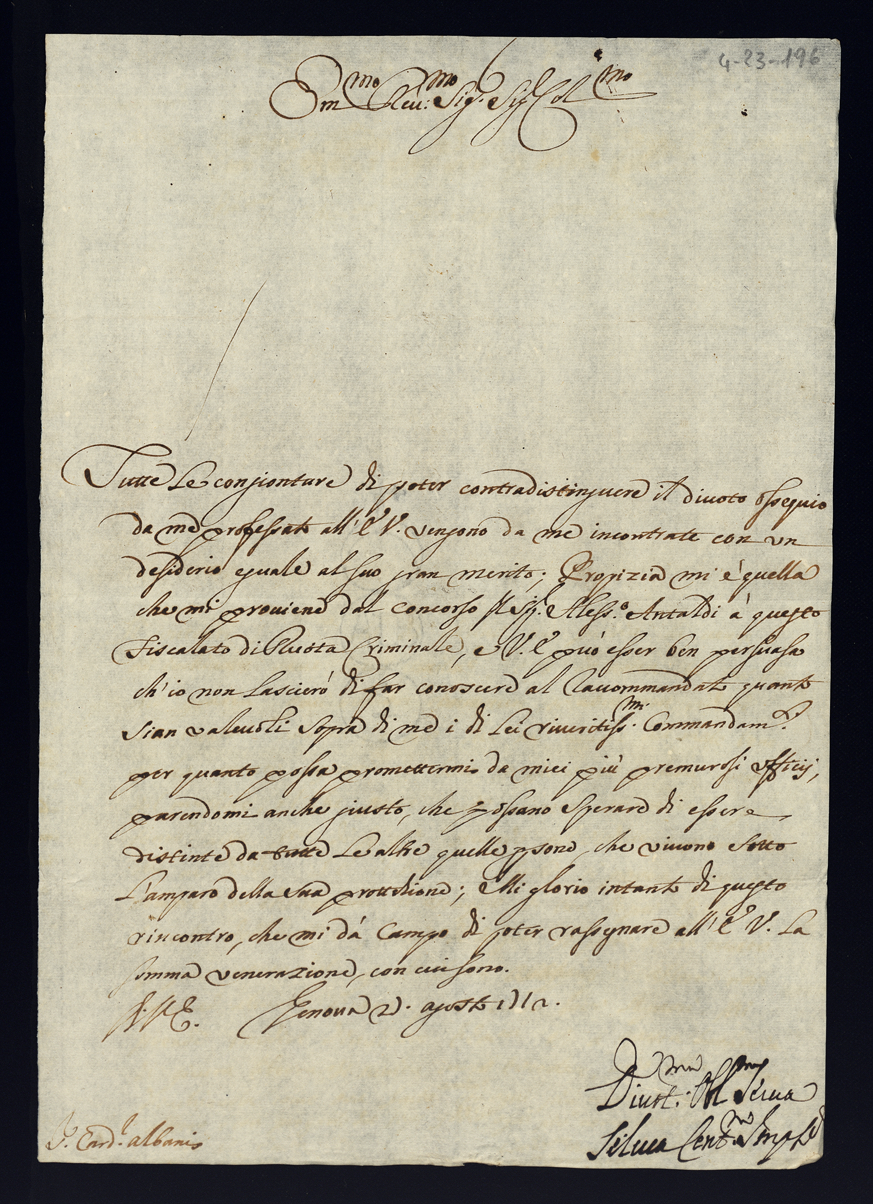 4-23-196
Em.mo Rev.mo Sig.r Sig.r Col.mo
Tutte Le congionture di poter contradistinguere il divoto ossequio
da me professato all' E. V. vengono da me incontrate con un
desiderio eguale al suo gran merito; Propizia mi è quella
che mi proviene dal concorso del Sig.r Aless.o Antaldi à questo
Fiscalato di Ruota Criminale, e V. E. può esser ben persuasa
ch'io non lascierò di far conoscere al raccommandato quanto
sian valevoli sopra di me i di Lei riveritiss.mi Commandam.ti
per quanto possa promettermi da miei più premurosi officij,
parendomi anche giusto, che possano sperare di essere
distinte da tutte Le altre quelle psone, che vivono sotto
L'amparo della sua protettione; E Mi glorio intanto di questo
rincontro, che mi dà Campo di poter rassegnare all' E. V. La
somma venerazione, con cui sono.
Genova agosto
Divot.ma Obl.ma Serva
Silvia
S. Card.l Albani